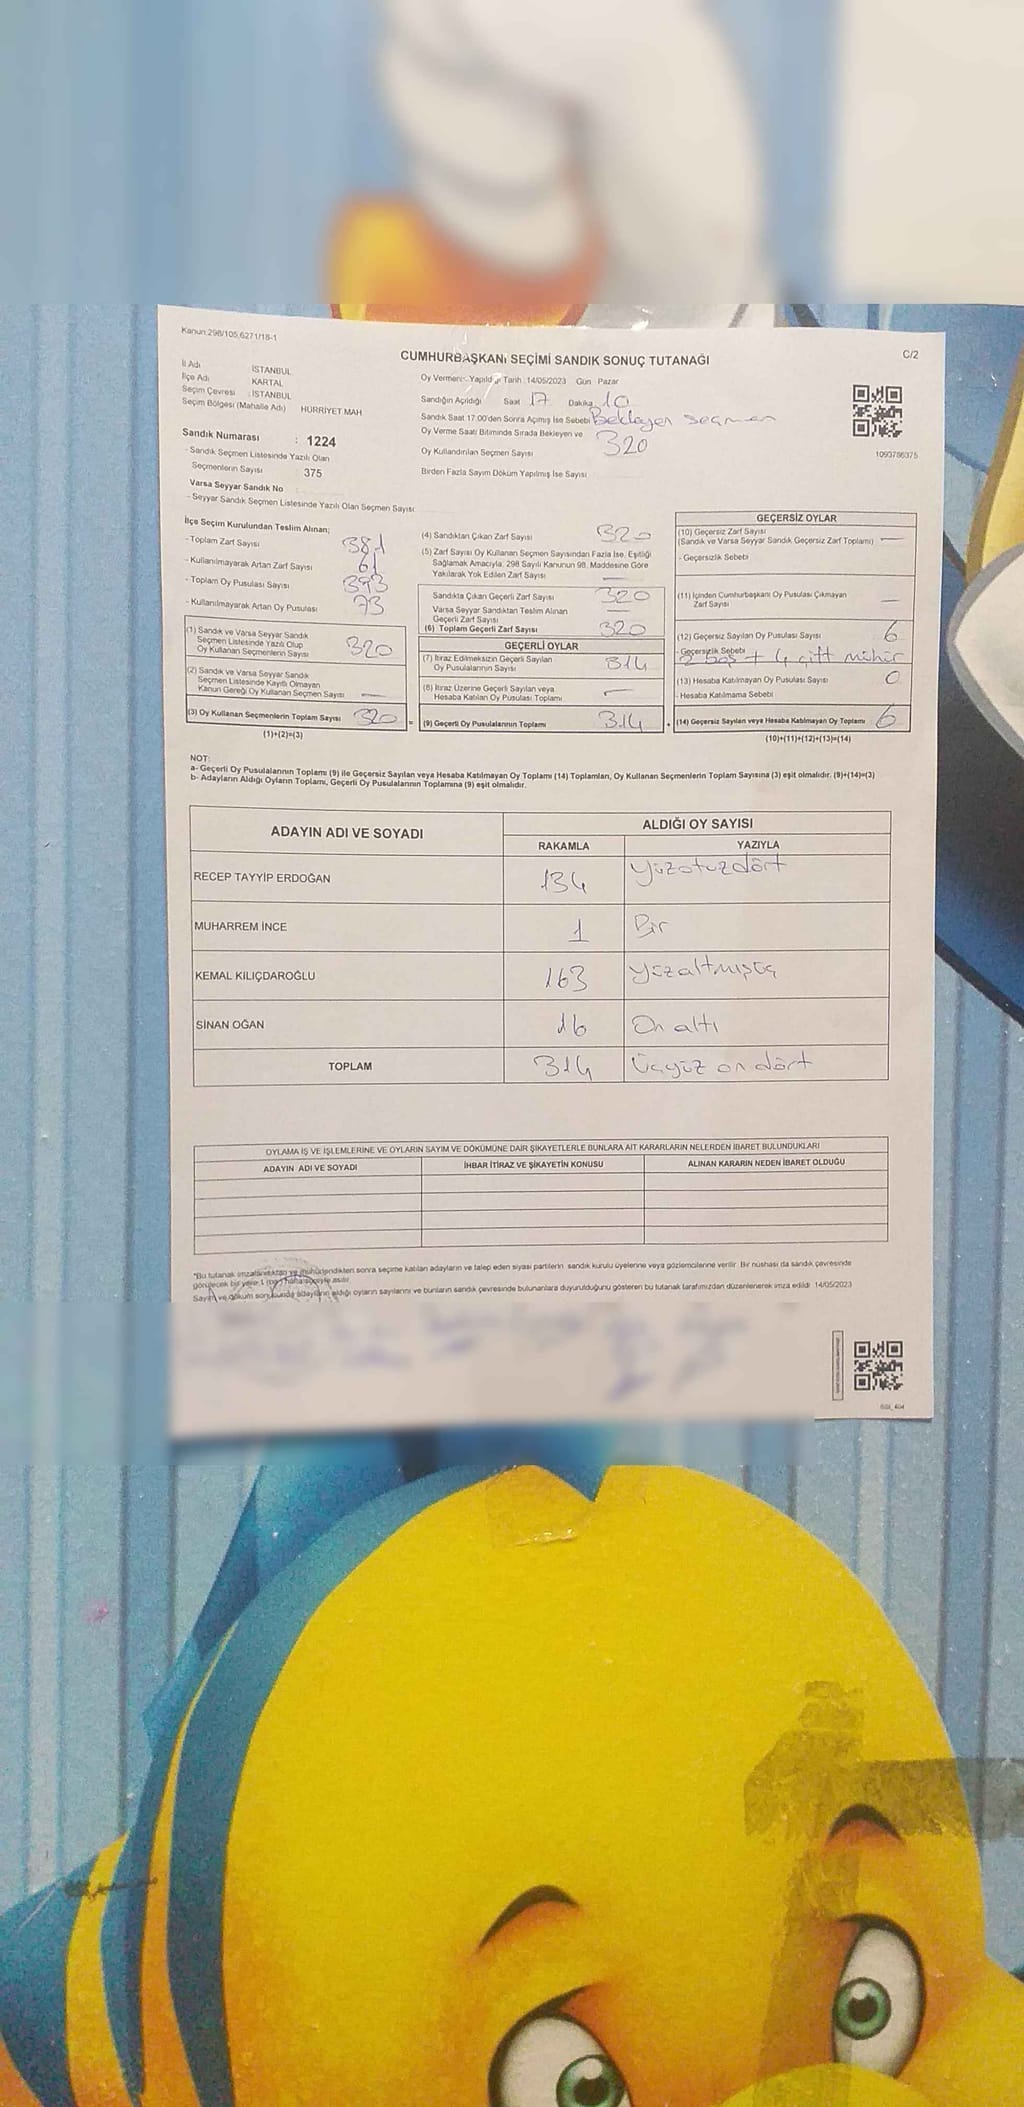 Kanun:298/105,6271/18-1
C/2
CUMHURBAŞKANI SEÇİMİ SANDIK SONUÇ TUTANAĞI
İl Adı İSTANBUL
İlçe Adı KARTAL
Seçim Çevresi : İSTANBUL
Seçim Bölgesi (Mahalle Adı) HÜRRİYET MAH
Sandık Numarası : 1224
- Sandık Seçmen Listesinde Yazılı Olan
Seçmenlerin Sayısı 375
Varsa Seyyar Sandık No
- Seyyar Sandık Seçmen Listesinde Yazılı Olan Seçmen Sayısı
Oy Vermenin Yapıldığı Tarih :14/05/2023 Gün Pazar
Sandığın Açıldığı Saat 17 Dakika 10
Sandık Saat 17:00'den Sonra Açılmış İse Sebebi Bekleyen seçmen
Oy Verme Saati Bitiminde Sırada Bekleyen ve
Oy Kullandırılan Seçmen Sayısı 320
Birden Fazla Sayım Döküm Yapılmış İse Sayısı
1093786375
İlçe Seçim Kurulundan Teslim Alınan;
- Toplam Zarf Sayısı 381
- Kullanılmayarak Artan Zarf Sayısı 61
- Toplam Oy Pusulası Sayısı 393
- Kullanılmayarak Artan Oy Pusulası 73
(1) Sandık ve Varsa Seyyar Sandık
Seçmen Listesinde Yazılı Olup
Oy Kullanan Seçmenlerin Sayısı 320
(2) Sandık ve Varsa Seyyar Sandık
Seçmen Listesinde Kayıtlı Olmayan
Kanun Gereği Oy Kullanan Seçmen Sayısı —
(3) Oy Kullanan Seçmenlerin Toplam Sayısı 320
(1)+(2)=(3)
(4) Sandıktan Çıkan Zarf Sayısı 320
(5) Zarf Sayısı Oy Kullanan Seçmen Sayısından Fazla İse, Eşitliği
Sağlamak Amacıyla, 298 Sayılı Kanunun 98. Maddesine Göre
Yakılarak Yok Edilen Zarf Sayısı —
Sandıkta Çıkan Geçerli Zarf Sayısı 320
Varsa Seyyar Sandıktan Teslim Alınan
Geçerli Zarf Sayısı
(6) Toplam Geçerli Zarf Sayısı 320
GEÇERLİ OYLAR
(7) İtiraz Edilmeksizin Geçerli Sayılan
Oy Pusulalarının Sayısı 314
(8) İtiraz Üzerine Geçerli Sayılan veya
Hesaba Katılan Oy Pusulası Toplamı —
= (9) Geçerli Oy Pusulalarının Toplamı 314
GEÇERSİZ OYLAR
(10) Geçersiz Zarf Sayısı
(Sandık ve Varsa Seyyar Sandık Geçersiz Zarf Toplamı) —
- Geçersizlik Sebebi
(11) İçinden Cumhurbaşkanı Oy Pusulası Çıkmayan
Zarf Sayısı —
(12) Geçersiz Sayılan Oy Pusulası Sayısı 6
- Geçersizlik Sebebi 2 boş + 4 çift mühür
(13) Hesaba Katılmayan Oy Pusulası Sayısı 0
- Hesaba Katılmama Sebebi
+ (14) Geçersiz Sayılan veya Hesaba Katılmayan Oy Toplamı 6
(10)+(11)+(12)+(13)=(14)
NOT:
a- Geçerli Oy Pusulalarının Toplamı (9) ile Geçersiz Sayılan veya Hesaba Katılmayan Oy Toplamı (14) Toplamları, Oy Kullanan Seçmenlerin Toplam Sayısına (3) eşit olmalıdır. (9)+(14)=(3)
b- Adayların Aldığı Oyların Toplamı, Geçerli Oy Pusulalarının Toplamına (9) eşit olmalıdır.
ADAYIN ADI VE SOYADI ALDIĞI OY SAYISI
RAKAMLA YAZIYLA
RECEP TAYYİP ERDOĞAN 134 Yüzotuzdört
MUHARREM İNCE 1 Bir
KEMAL KILIÇDAROĞLU 163 Yüzaltmışüç
SİNAN OĞAN 16 On altı
TOPLAM 314 Üçyüz on dört
OYLAMA İŞ VE İŞLEMLERİNE VE OYLARIN SAYIM VE DÖKÜMÜNE DAİR ŞİKAYETLERLE BUNLARA AİT KARARLARIN NELERDEN İBARET BULUNDUKLARI
ADAYIN ADI VE SOYADI İHBAR İTİRAZ VE ŞİKAYETİN KONUSU ALINAN KARARIN NEDEN İBARET OLDUĞU
*Bu tutanak imzalandıktan ve mühürlendikten sonra seçime katılan adayların ve talep eden siyasi partilerin sandık kurulu üyelerine veya gözlemcilerine verilir. Bir nüshası da sandık çevresinde
görülecek bir yere 1 (bir) hafta süreyle asılır.
Sayım ve döküm sonucunda adayların aldığı oyların sayılarını ve bunların sandık çevresinde bulunanlara duyurulduğunu gösteren bu tutanak tarafımızdan düzenlenerek imza edildi 14/05/2023